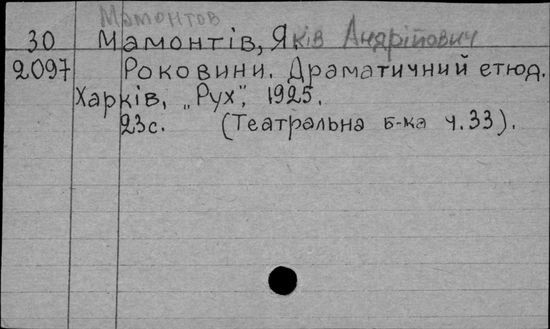 Мамонтов
30 Мамонтів, Яків Андрійович
2097 Роковини. Драматичний етюд.
Харків, „Рух", 1925.
23с. (Театральна б-ка ч.33).